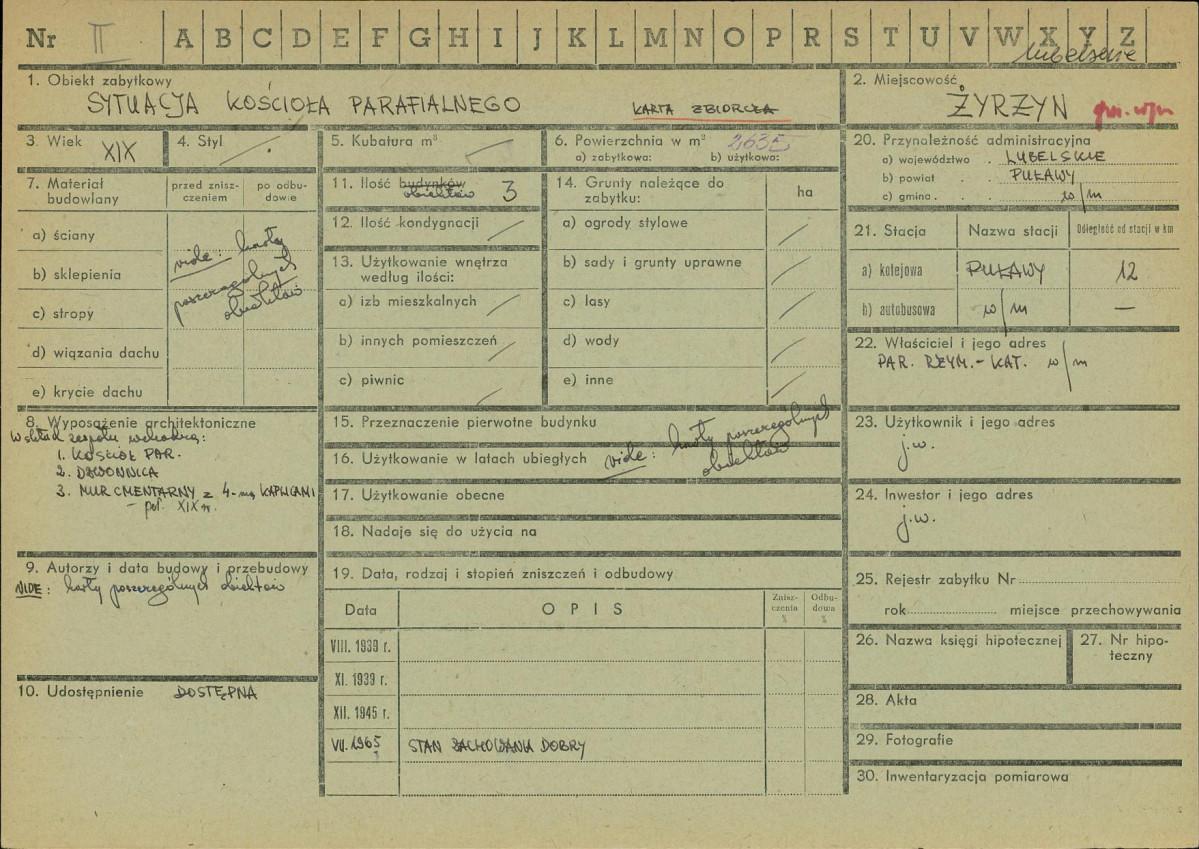 Nr II A B C D E F G H I J K L M N O P R S T U V W X Y Z
lubelskie
1. Obiekt zabytkowy
SYTUACJA KOŚCIOŁA PARAFIALNEGO KARTA ZBIORCZA
2. Miejscowość
ŻYRZYN
3. Wiek XIX
4. Styl
5. Kubatura m³
6. Powierzchnia w m²
a) zabytkowa: b) użytkowa:
20. Przynależność administracyjna
a) województwo . LUBELSKIE
b) powiat . PUŁAWY
c) gmina . . . w/m
7. Materiał budowlany
przed zniszczeniem
po odbudowie
a) ściany
b) sklepienia
c) stropy
d) wiązania dachu
e) krycie dachu
vide: karty
poszczególnych
obiektów
11. Ilość budynków
obiektów 3
12. Ilość kondygnacji
13. Użytkowanie wnętrza
według ilości:
a) izb mieszkalnych
b) innych pomieszczeń
c) piwnic
14. Grunty należące do
zabytku:
ha
a) ogrody stylowe
b) sady i grunty uprawne
c) lasy
d) wody
e) inne
21. Stacja Nazwa stacji Odległość od stacji w km
a) kolejowa PUŁAWY 12
b) autobusowa w/m —
22. Właściciel i jego adres
PAR. RZYM.-KAT. w/m
8. Wyposażenie architektoniczne
W skład zespołu wchodzą:
1. KOŚCIÓŁ PAR.
2. DZWONNICA
3. MUR CMENTARNY z 4-ma KAPLICAMI
– poł. XIX w.
15. Przeznaczenie pierwotne budynku
16. Użytkowanie w latach ubiegłych vide: karty poszczególnych
obiektów
17. Użytkowanie obecne
18. Nadaje się do użycia na
23. Użytkownik i jego adres
j.w.
24. Inwestor i jego adres
j.w.
9. Autorzy i data budowy i przebudowy
VIDE: karty poszczególnych obiektów
10. Udostępnienie DOSTĘPNA
19. Data, rodzaj i stopień zniszczeń i odbudowy
Data OPIS Zniszczenia % Odbudowa %
VIII. 1939 r.
XI. 1939 r.
XII. 1945 r.
VII. 1965 STAN ZACHOWANIA DOBRY
25. Rejestr zabytku Nr
rok miejsce przechowywania
26. Nazwa księgi hipotecznej
27. Nr hipoteczny
28. Akta
29. Fotografie
30. Inwentaryzacja pomiarowa